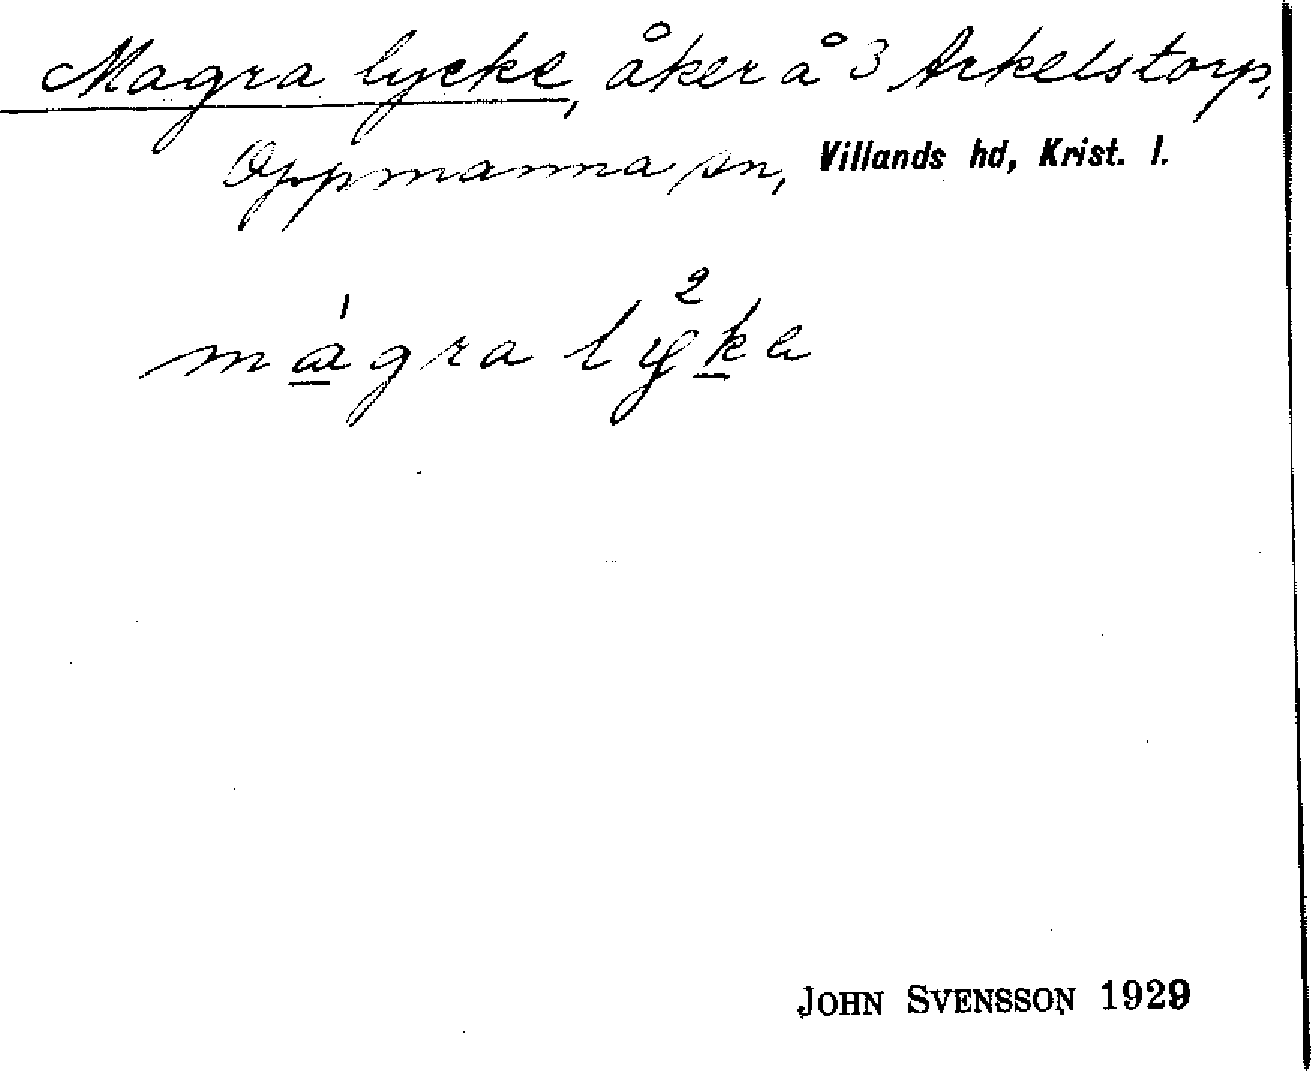 Magra lycke, åker å 3 Arkelstorp,
Oppmanna sn, Villands hd, Krist. l.
1 2
magra lyka
JOHN SVENSSON 1929